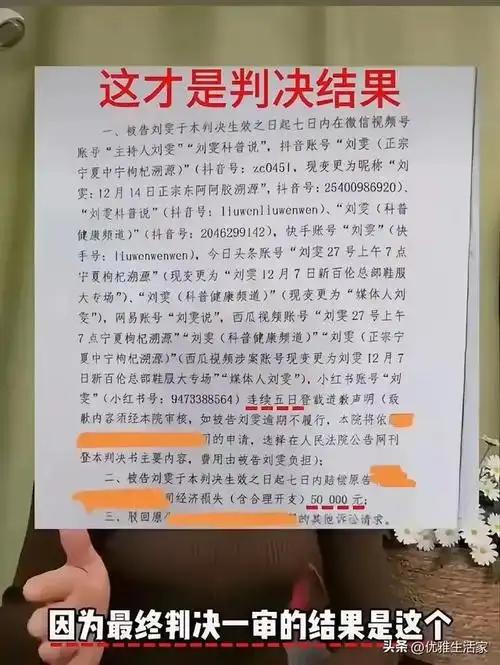 这才是判决结果
一、被告刘雯于本判决生效之日起七日内在微信视频号
账号“主持人刘雯”“刘雯科普说”，抖音账号“刘雯（正宗
宁夏中宁枸杞溯源）”（抖音号：zc045l，现变更为昵称“刘
雯：12月14日正宗东阿阿胶溯源”，抖音号：25400986920）、
“刘雯科普说”（抖音号：liuwenliuwenwen）、“刘雯（科普
健康频道）”（抖音号：2046299142），快手账号“刘雯”（快
手号：liuwenwenwen），今日头条账号“刘雯27号上午7点
宁夏枸杞溯源”（现变更为“刘雯12月7日新百伦总部鞋服
大专场”）、“刘雯（科普健康频道）”（现变更为“媒体人刘
雯”），网易账号“刘雯说”，西瓜视频账号“刘雯27号上午
7点宁夏枸杞溯源”“刘雯（科普健康频道）”“刘雯（正宗宁
夏中宁枸杞溯源）”（西瓜视频涉案账号现变更为刘雯12月7
日新百伦总部鞋服大专场”“媒体人刘雯”），小红书账号“刘
雯”（小红书号：9473388564）连续五日登载道歉声明（致
歉内容须经本院审核，如被告刘雯逾期不履行，本院将依
司的申请，选择在人民法院公告网刊
登本判决书主要内容，费用由被告刘雯负担）；
二、被告刘雯于本判决生效之日起七日内赔偿原告
司经济损失（含合理开支）50 000元；
三、驳回原
的其他诉讼请求。
因为最终判决一审的结果是这个
头条 @优雅生活家